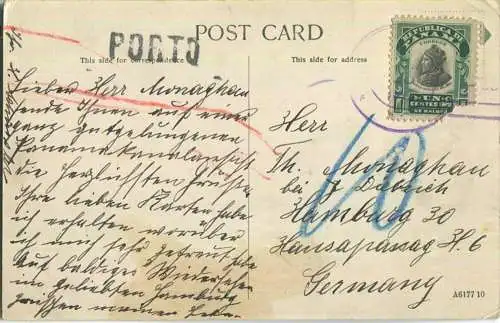 POST CARD
PORTO
This side for correspondence
This side for address
REPUBLICA DE
PANAMA
CORREOS
UN C
CENTESIMO
DE BALBOA
Lieber Herr Monaghan
sende Ihnen auf einer
ganz gutgelungenen
Panamakanalansicht
die herzlichsten Grüsse
Ihre lieben Karten habe
ich erhalten worüber
ich mich sehr gefreut habe
Auf baldiges Wiedersehen
im geliebten Hamburg
Herr
Th. Monaghan
bei J. Däbrich
Hamburg 30
Hansapassag H. 6
Germany
10
A6177 10